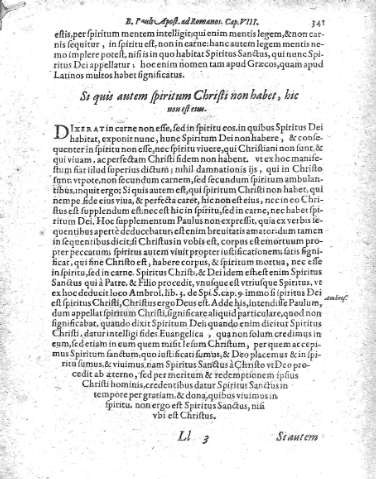 B. Pauli Apost. ad Romanos. Cap. VIII. 341
estis, per spiritum mentem intelligit, qui enim mentis legem, & non car-
nis sequitur, in spiritu est, non in carne: hanc autem legem mentis ne-
mo implere potest, nisi is in quo habitat Spiritus Sanctus, qui nunc Spi-
ritus Dei appellatur; hoc enim nomen tam apud Græcos, quam apud
Latinos multos habet significatus.
Si quis autem spiritum Christi non habet, hic
non est eius.
DIXERAT in carne non esse, sed in spiritu eos, in quibus Spiritus Dei
habitat, exponit nunc, hunc Spiritum Dei non habere, & conse-
quenter in spiritu non esse, nec spiritu viuere, qui Christiani non sunt, &
qui viuam, ac perfectam Christi fidem non habent. vt ex hoc manife-
stum fiat illud superius dictum; nihil damnationis ijs, qui in Christo
sunt: vtpote, non secundum carnem, sed secundum spiritum ambulan-
tibus, inquit ergo: Si quis autem est, qui spiritum Christi non habet, qui
nempe fide eius viua, & perfecta caret, hic non est eius, nec in eo Chri-
stus est supplendum est: nec est hic in spiritu, sed in carne, nec habet spi-
ritum Dei. Hoc supplementum Paulus non expressit, quia ex verbis se-
quentibus apertè deducebatur, est enim breuitatis amator, id tamen
in sequentibus dicit, si Christus in vobis est, corpus est mortuum pro-
pter peccatum: spiritus autem viuit propter iustificationem, satis signi-
ficat, qui sine Christo est, habere corpus, & spiritum mortua, nec esse
in spiritu, sed in carne. Spiritus Christi, & Dei idem est, est enim Spiritus
Sanctus qui à Patre, & Filio procedit, vnusque est vtriusque Spiritus, vt
ex hoc deducit loco Ambros. lib. 3. de Spi. S. cap. 9. immo si spiritus Dei
est spiritus Christi, Christus ergo Deus est. Adde his, intendisse Paulum,
Ambros.
dum appellat spiritum Christi, significare aliquid particulare, quod non
significabat, quando dixit Spiritum Dei; quando enim dicitur Spiritus
Christi, datur intelligi fides Euangelica, qua non solum credimus in
eum, sed etiam in eum quem misit Iesum Christum, per quem accepi-
mus Spiritum sanctum, quo iustificati sumus, & Deo placemus & in spi-
ritu sumus, & viuimus, nam Spiritus Sanctus à Christo vt Deo pro-
cedit ab æterno, sed per meritum & redemptionem ipsius
Christi hominis, credentibus datur Spiritus Sanctus in
tempore per gratiam, & dona, quibus viuimus in
spiritu. non ergo est Spiritus Sanctus, nisi
vbi est Christus.
Ll 3 Si autem